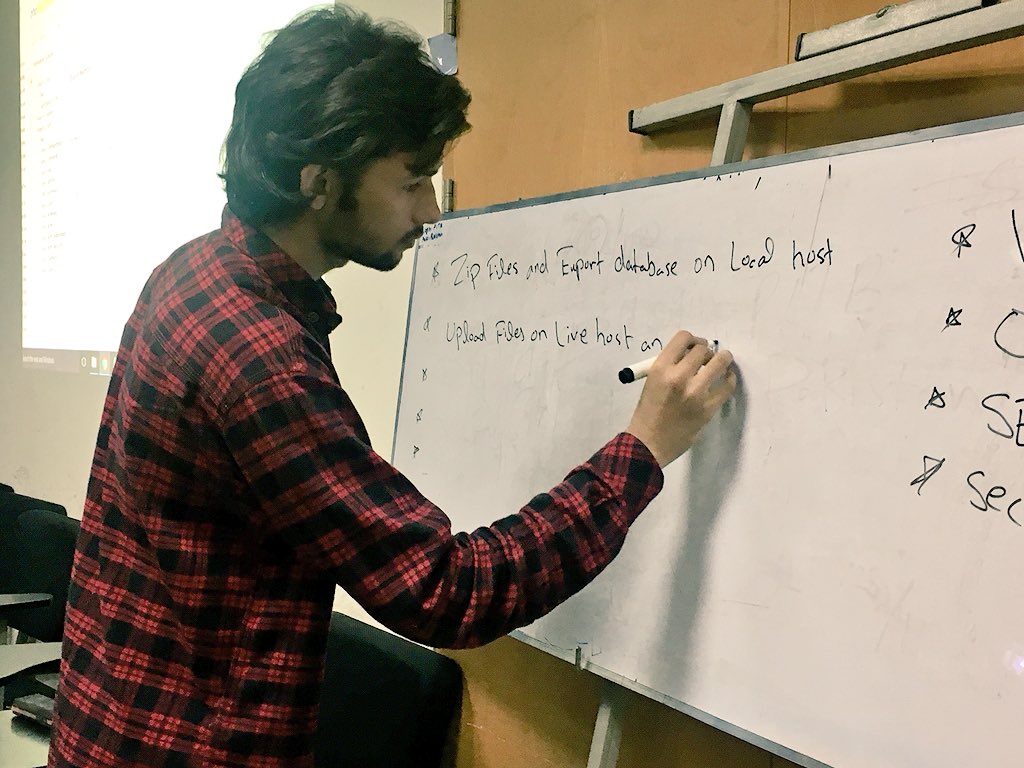 Zip Files and Export database on Local host
Upload Files on Live host an
SE
Sec